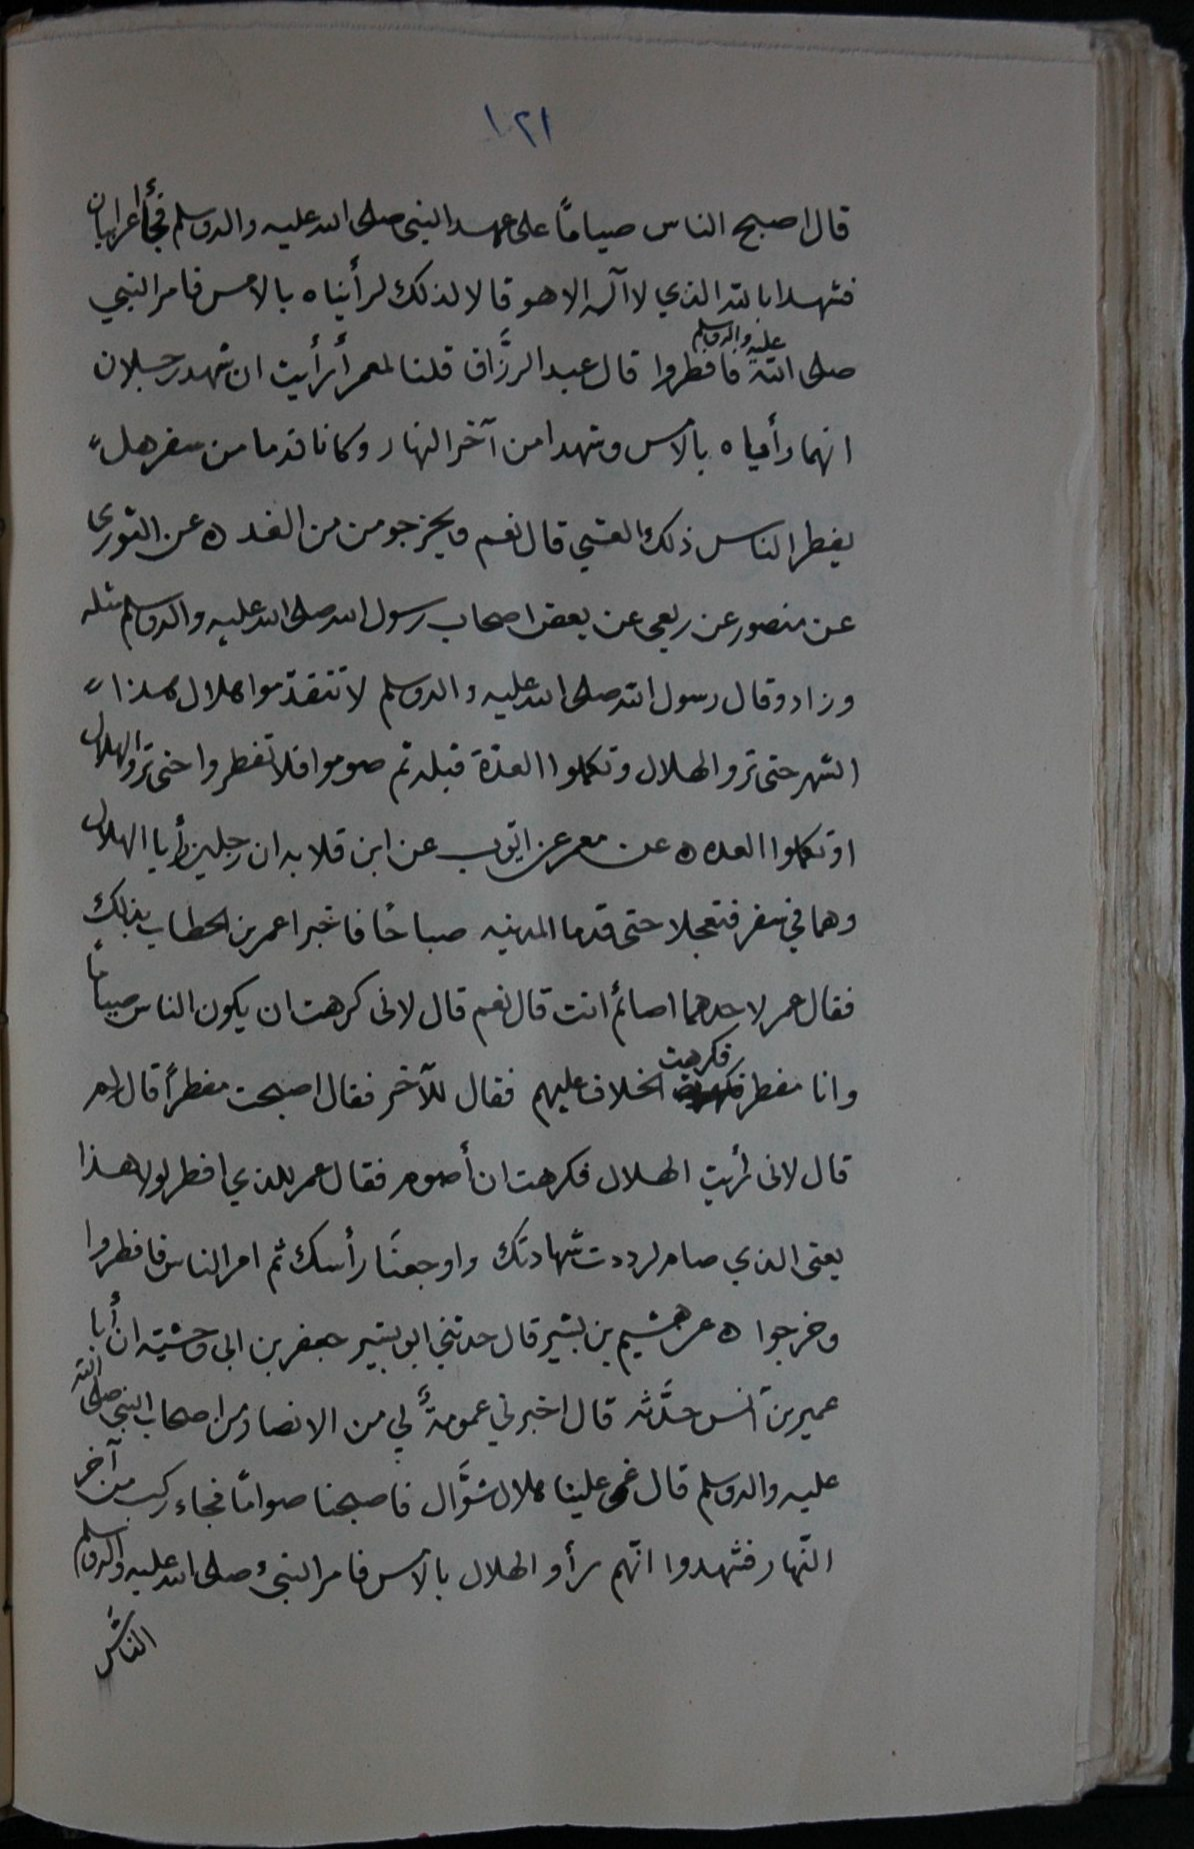 ١٠٢١
قال اصبح الناس صياماً على عهد النبى صلى الله عليه واله وسلم فجأ اعرابيان
فشهدا بالله الذي لا آله الا هو قالا لذلك لرأيناه بالامس فامر النبي
صلى الله عليه واله وسلم فافطروا قال عبد الرزَّاق قلنا لمعمر أرأيت ان شهد رجلان
انهما رأياه بالامس وشهدا من آخر النهار وكانا قدما من سفر هل
يفطر الناس ذلك العشي قال نعم ويخرجو من من الغد ه عن الثورى
عن منصور عن ربعى عن بعض اصحاب رسول الله صلى الله عليه واله وسلم مثله
وزاد وقال رسول الله صلى الله عليه واله وسلم لا تتقدّموا هلال هذا
الشهر حتى تروالهلال وتكملوا العدّة قبله ثم صوموا فلا تفطروا حتى تروالهلال
او تكملوا العده ه عن معمر عن ايّوب عن ابن قلابه ان رجلين رأيا الهلال
وهما في سفر فتعجلا حتى قدما المدينه صباحًا فاخبرا عمر بن الخطاب بذلك
فقال عمر لاحدهما اصائم انت قال نعم قال لانى كرهت ان يكون الناس صياماً
وانا مفطر فكرهت الخلاف عليهم فقال للآخر فقال اصبحت مفطراً قال لم
قال لانى رأيت الهلال فكرهت ان أصوم فقال عمر للذي افطر لولا هذا
يعنى الذي صام لرددت شهادتك واوجعنَا رأسك ثم امر الناس فافطروا
وخرجوا ه عن هشيم بن بشير قال حدثني ابو بشير جعفر بن ابى وحشيّه ان أبا
عمير بن آنس حدَّثه قال اخبرني عمومةٌ لي من الانصار من اصحاب النبى صلى الله
عليه واله وسلم قال غمى علينا هلال شوَّال فاصبحنا صوامًا فجاء ركب من آخر
النّهار فشهدوا انّهم رأو الهلال بالامس فامر النبىُ صلى الله عليه واله وسلم
الناسَ